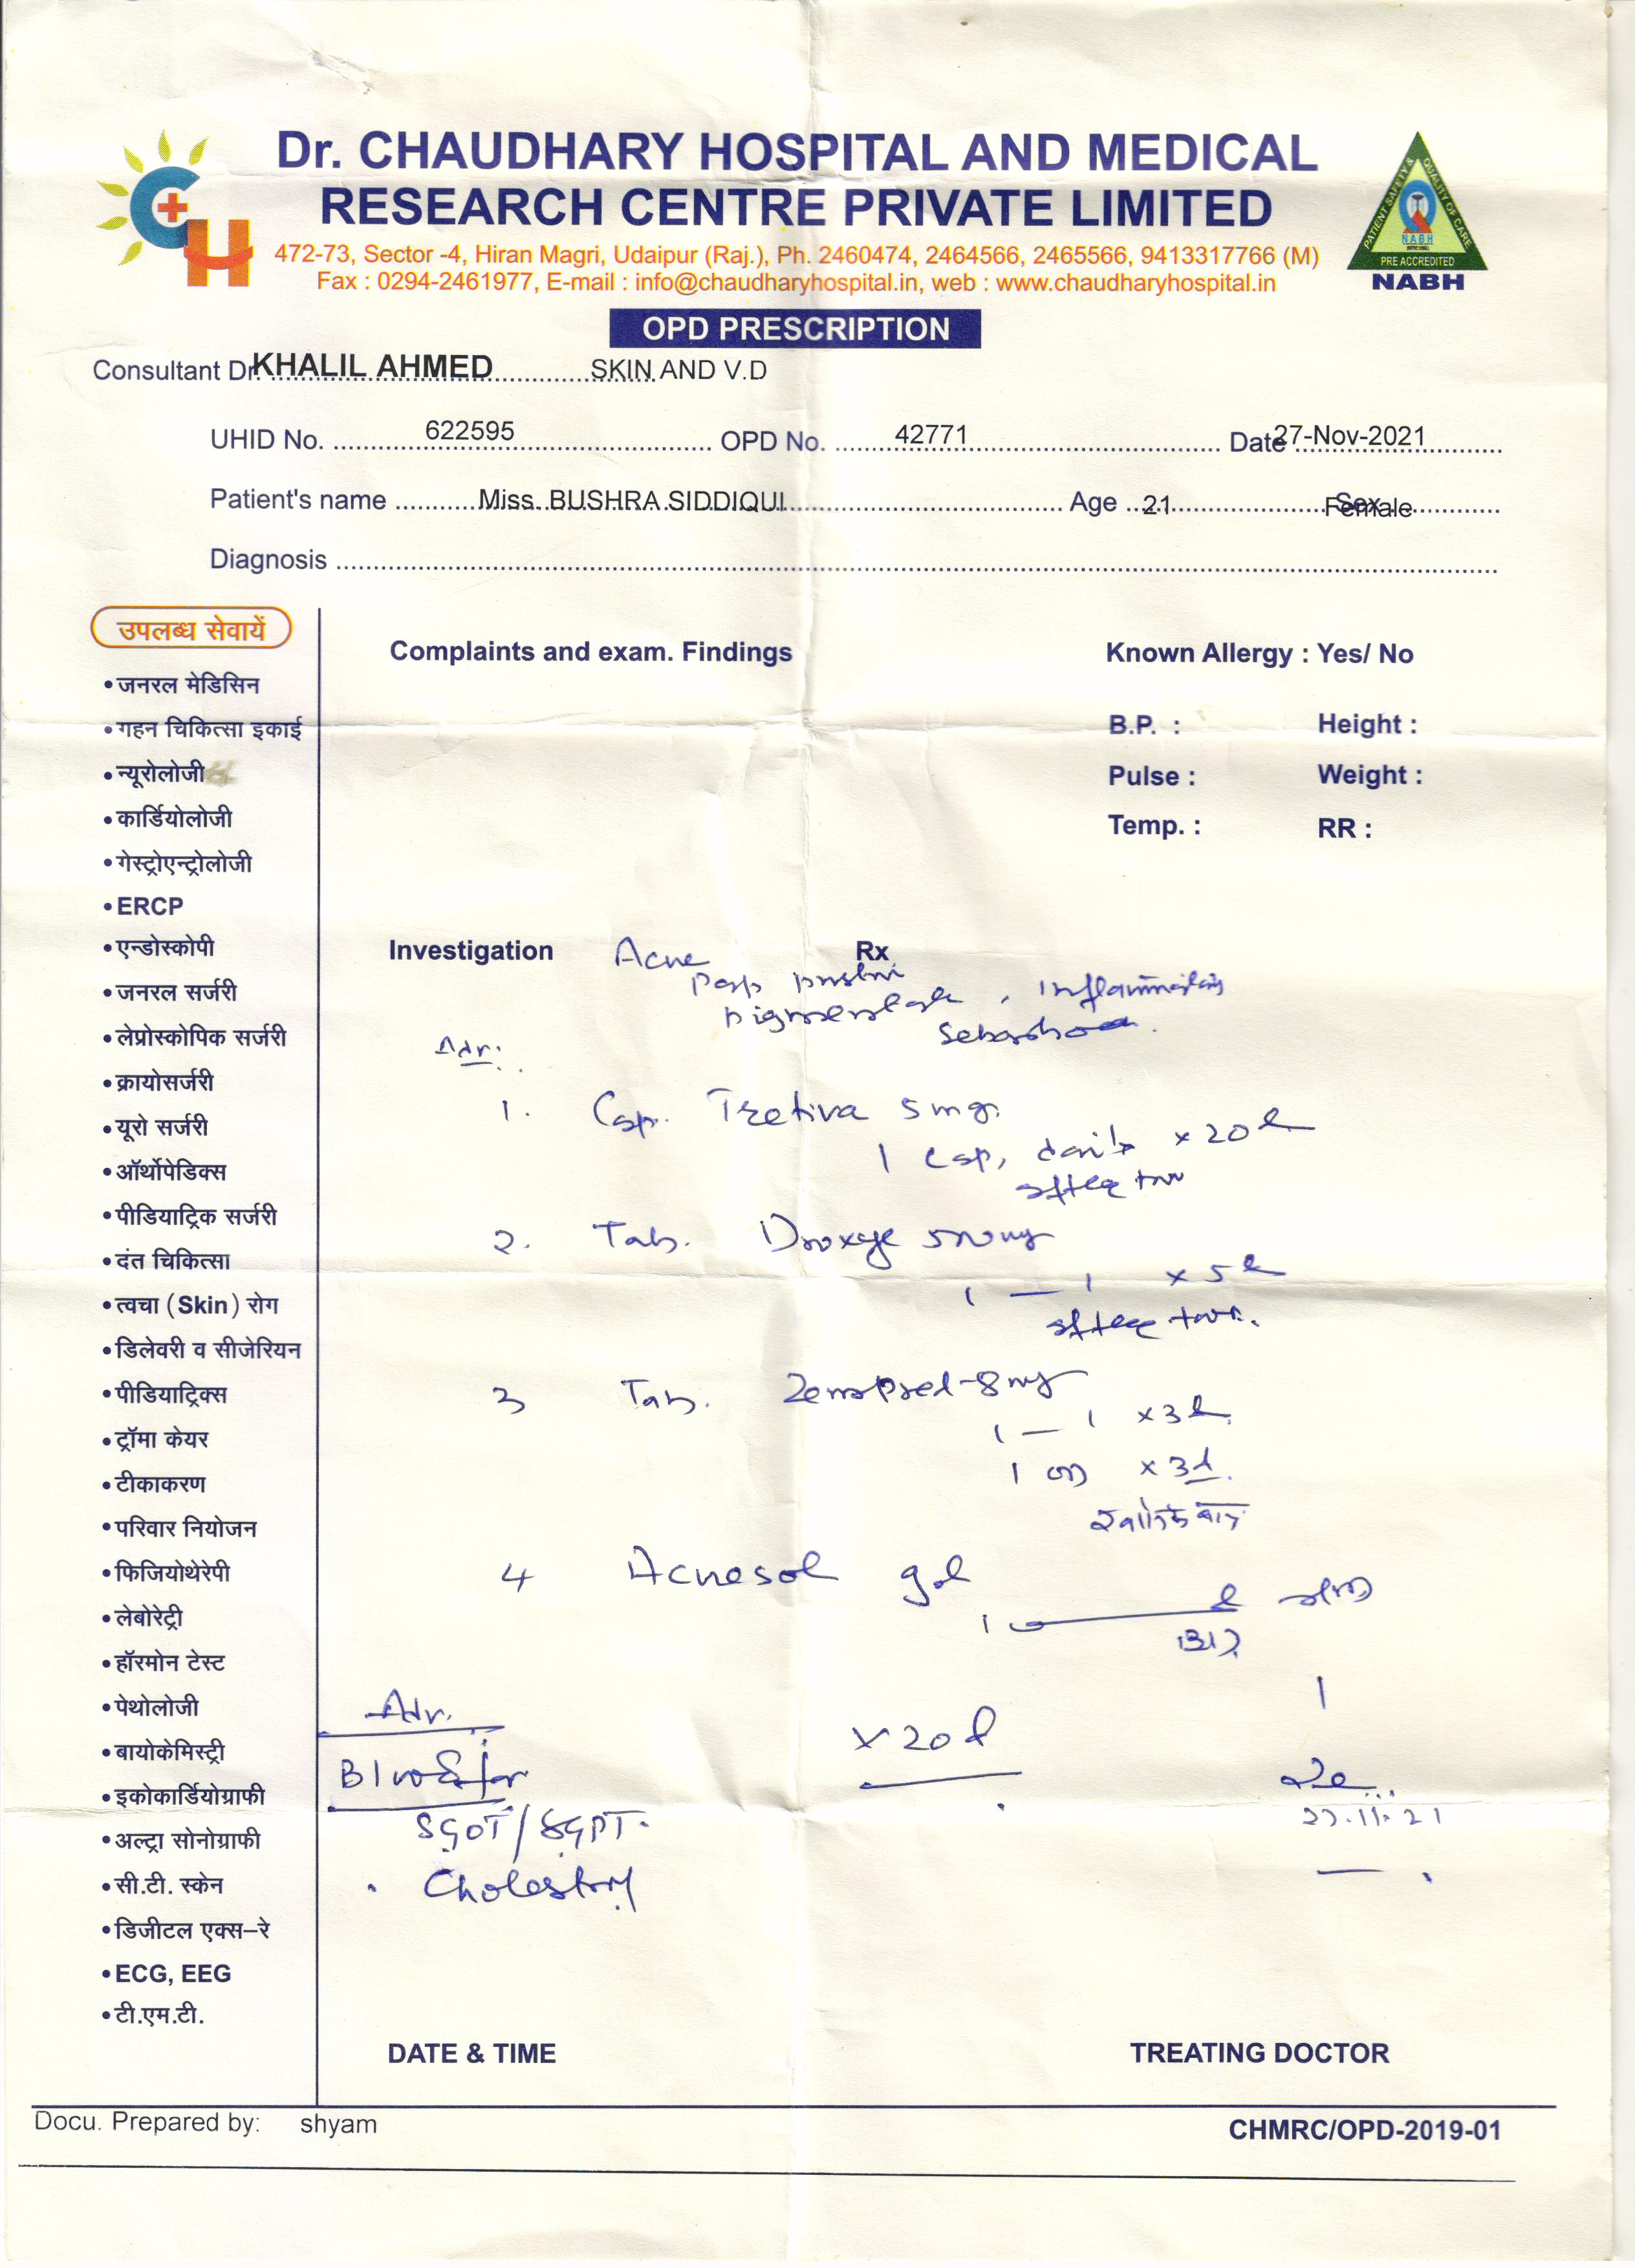 Dr. CHAUDHARY HOSPITAL AND MEDICAL
RESEARCH CENTRE PRIVATE LIMITED
472-73, Sector -4, Hiran Magri, Udaipur (Raj.), Ph. 2460474, 2464566, 2465566, 9413317766 (M)
Fax : 0294-2461977, E-mail : info@chaudharyhospital.in, web : www.chaudharyhospital.in
PATIENT SAFETY & QUALITY OF CARE
NABH
PRE ACCREDITED
NABH
OPD PRESCRIPTION
Consultant Dr. KHALIL AHMED SKIN AND V.D
UHID No. 622595 OPD No. 42771 Date 27-Nov-2021
Patient's name Miss. BUSHRA SIDDIQUI Age 21 Sex Female
Diagnosis
उपलब्ध सेवायें
• जनरल मेडिसिन
• गहन चिकित्सा इकाई
• न्यूरोलोजी
• कार्डियोलोजी
• गेस्ट्रोएन्ट्रोलोजी
• ERCP
• एन्डोस्कोपी
• जनरल सर्जरी
• लेप्रोस्कोपिक सर्जरी
• क्रायोसर्जरी
• यूरो सर्जरी
• ऑर्थोपेडिक्स
• पीडियाट्रिक सर्जरी
• दंत चिकित्सा
• त्वचा (Skin) रोग
• डिलेवरी व सीजेरियन
• पीडियाट्रिक्स
• ट्रॉमा केयर
• टीकाकरण
• परिवार नियोजन
• फिजियोथेरेपी
• लेबोरेट्री
• हॉरमोन टेस्ट
• पेथोलोजी
• बायोकेमिस्ट्री
• इकोकार्डियोग्राफी
• अल्ट्रा सोनोग्राफी
• सी.टी. स्केन
• डिजीटल एक्स-रे
• ECG, EEG
• टी.एम.टी.
Complaints and exam. Findings
Known Allergy : Yes/ No
B.P. : Height :
Pulse : Weight :
Temp. : RR :
Investigation Acne Rx
Adv.
1. Cap. Tretiva 5 mg.
1 Cap, daily x 20 d
2. Tab. 500 mg
1 — 1 x 5 d
3 Tab. 8 mg
1 — 1 x 3 d
1 OD x 3 d.
4 Acnesol gel
x 20 d
Adv.
Blood for
SGOT / SGPT.
Cholestrol
27.11.21
DATE & TIME
TREATING DOCTOR
Docu. Prepared by: shyam
CHMRC/OPD-2019-01